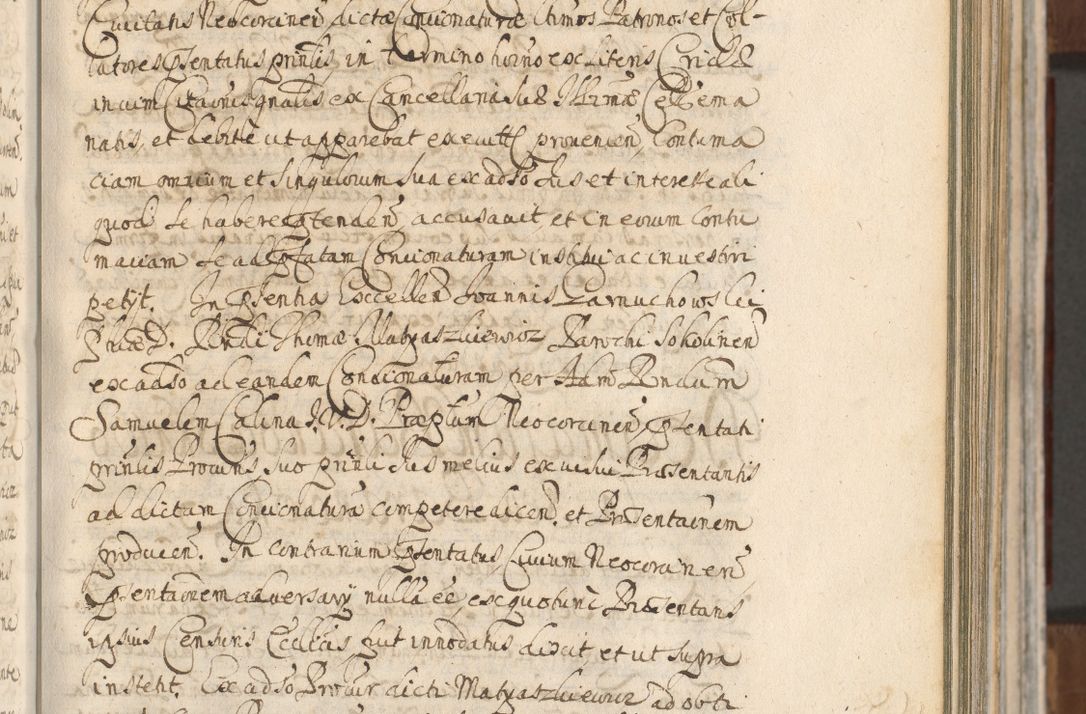 Civitatis Neocorcinen dictæ Concionaturæ Ltimos Patronos et Col-
latores Psentatus prinlis, in termino horno ex Literis Cridæ
in vim Citaõnis gnalis ex Cancellaria Suæ Illrmæ Cels ema
natis, et debite ut apparebat executt provenien, Contuma
ciam omnium et Singulorum Sua ex adso Jus et interesse ali
quod se habere Ptenden, accusavit et in eorum Contu
maciam se ad Pfatam Concionaturam institui ac investiri
petijt. In Psentia Excellen Joannis Parnuchowski
Phiæ D. Rndi Thomæ Matyaszkiewicz Parochi Sokolinen
ex adso ad eandem Concionaturam per Adm Rndum
Samuelem Calina J. V. D. Præptum Neocorcinen Psentati
prinlis Procuris Suo prinli Jus melius ex vi sui Præsentantis
ad dictam Concionatura competere dicen. et Præsentaõnem
producen. In contrarium Psentatus Civium Neocorcinen
Psentaõnem adversarÿ nulla ee, ex quo tunc Præsentans
ipsius Censuris Ecclicis fuit innodatus dixit, et ut supra
institit. Ex adso Procur dicti Matyaszkiewicz ad obti